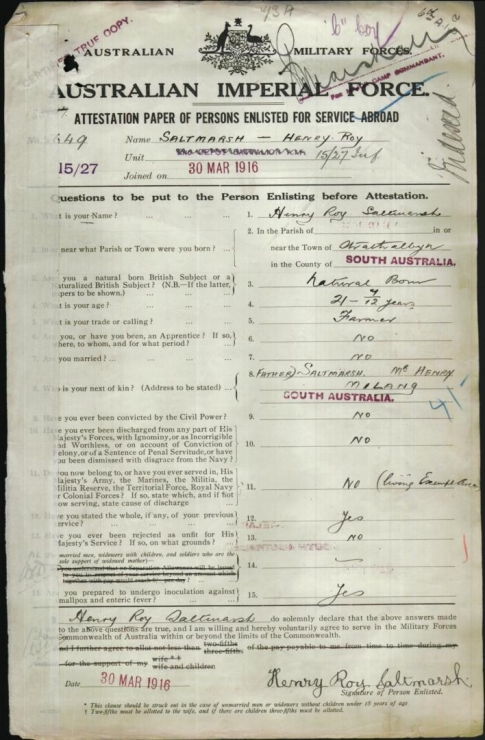 CERTIFIED TRUE COPY.
"b" boy
AUSTRALIAN MILITARY FORCES.
CAMP COMMANDANT.
AUSTRALIAN IMPERIAL FORCE.
ATTESTATION PAPER OF PERSONS ENLISTED FOR SERVICE ABROAD
649 Name SALTMARSH — HENRY ROY
Unit 15/27 Inf
15/27 Joined on 30 MAR 1916
Questions to be put to the Person Enlisting before Attestation.
1. What is your Name? ... 1. Henry Roy Saltmarsh
2. In the Parish of in or
In or near what Parish or Town were you born? ... near the Town of
in the County of SOUTH AUSTRALIA.
Are you a natural born British Subject or a
Naturalized British Subject? (N.B.—If the latter, 3. Natural Born
papers to be shown.)
What is your age? 4. 21 - 4/12 years
What is your trade or calling? 5. Farmer
Are you, or have you been, an Apprentice? If so, 6. NO
where, to whom, and for what period?
Are you married? ... 7. NO
8. (FATHER) SALTMARSH. Mr HENRY
Who is your next of kin? (Address to be stated) ... MILANG
SOUTH AUSTRALIA.
41
Have you ever been convicted by the Civil Power? 9. NO
Have you ever been discharged from any part of His
Majesty's Forces, with Ignominy, or as Incorrigible
and Worthless, or on account of Conviction of 10. NO
Felony, or of a Sentence of Penal Servitude, or have
you been dismissed with disgrace from the Navy?
Do you now belong to, or have you ever served in, His
Majesty's Army, the Marines, the Militia, the
Militia Reserve, the Territorial Force, Royal Navy 11. NO (living Exempt Area
or Colonial Forces? If so, state which, and if not
now serving, state cause of discharge
Have you stated the whole, if any, of your previous 12. Yes
service?
Have you ever been rejected as unfit for His 13. NO
Majesty's Service? If so, on what grounds?
married men, widowers with children, and soldiers who are the
sole support of widowed mother)— 14. —
Are you prepared to undergo inoculation against 15. Yes
smallpox and enteric fever?
Henry Roy Saltmarsh do solemnly declare that the above answers made
to the above questions are true, and I am willing and hereby voluntarily agree to serve in the Military Forces
Commonwealth of Australia within or beyond the limits of the Commonwealth.
and I further agree to allot not less than two-fifths three-fifths of the pay payable to me from time to time during my
for the support of my wife * † wife and children
Date 30 MAR 1916 Henry Roy Saltmarsh
Signature of Person Enlisted.
* This clause should be struck out in the case of unmarried men or widowers without children under 18 years of age
† Two-fifths must be allotted to the wife, and if there are children three-fifths must be allotted.